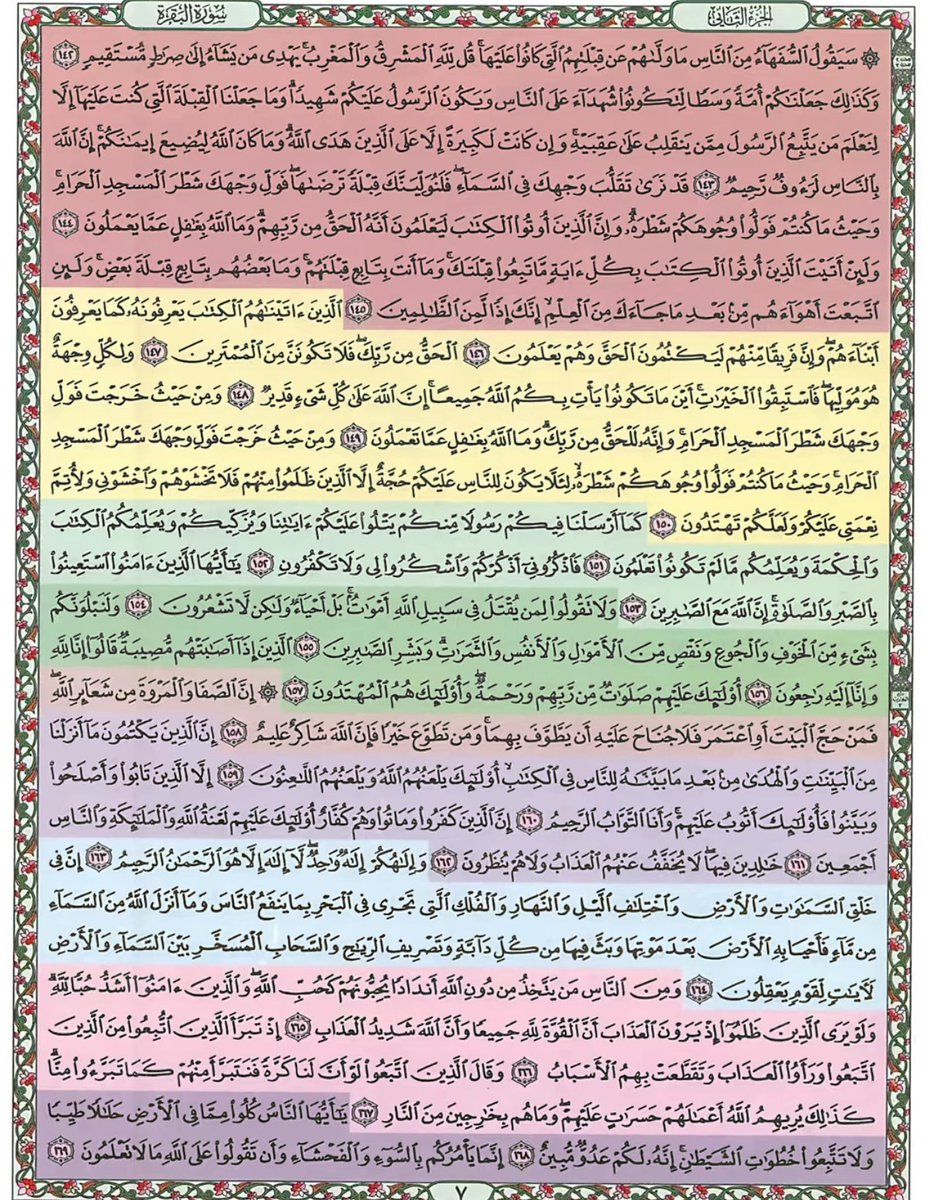 الجزء الثاني
سورة البقرة
۞ سَيَقُولُ السُّفَهَاءُ مِنَ النَّاسِ مَا وَلَّىٰهُمْ عَن قِبْلَتِهِمُ الَّتِي كَانُوا عَلَيْهَا ۚ قُل لِّلَّهِ الْمَشْرِقُ وَالْمَغْرِبُ ۚ يَهْدِي مَن يَشَاءُ إِلَىٰ صِرَٰطٍ مُّسْتَقِيمٍ ١٤٢
وَكَذَٰلِكَ جَعَلْنَٰكُمْ أُمَّةً وَسَطًا لِّتَكُونُوا شُهَدَاءَ عَلَى النَّاسِ وَيَكُونَ الرَّسُولُ عَلَيْكُمْ شَهِيدًا ۗ وَمَا جَعَلْنَا الْقِبْلَةَ الَّتِي كُنتَ عَلَيْهَا إِلَّا
لِنَعْلَمَ مَن يَتَّبِعُ الرَّسُولَ مِمَّن يَنقَلِبُ عَلَىٰ عَقِبَيْهِ ۚ وَإِن كَانَتْ لَكَبِيرَةً إِلَّا عَلَى الَّذِينَ هَدَى اللَّهُ ۗ وَمَا كَانَ اللَّهُ لِيُضِيعَ إِيمَٰنَكُمْ ۚ إِنَّ اللَّهَ
بِالنَّاسِ لَرَءُوفٌ رَّحِيمٌ ١٤٣ قَدْ نَرَىٰ تَقَلُّبَ وَجْهِكَ فِي السَّمَاءِ ۖ فَلَنُوَلِّيَنَّكَ قِبْلَةً تَرْضَىٰهَا ۚ فَوَلِّ وَجْهَكَ شَطْرَ الْمَسْجِدِ الْحَرَامِ ۚ
وَحَيْثُ مَا كُنتُمْ فَوَلُّوا وُجُوهَكُمْ شَطْرَهُ ۗ وَإِنَّ الَّذِينَ أُوتُوا الْكِتَٰبَ لَيَعْلَمُونَ أَنَّهُ الْحَقُّ مِن رَّبِّهِمْ ۗ وَمَا اللَّهُ بِغَٰفِلٍ عَمَّا يَعْمَلُونَ ١٤٤
وَلَئِنْ أَتَيْتَ الَّذِينَ أُوتُوا الْكِتَٰبَ بِكُلِّ ءَايَةٍ مَّا تَبِعُوا قِبْلَتَكَ ۚ وَمَا أَنتَ بِتَابِعٍ قِبْلَتَهُمْ ۚ وَمَا بَعْضُهُم بِتَابِعٍ قِبْلَةَ بَعْضٍ ۚ وَلَئِنِ
اتَّبَعْتَ أَهْوَاءَهُم مِّن بَعْدِ مَا جَاءَكَ مِنَ الْعِلْمِ ۙ إِنَّكَ إِذًا لَّمِنَ الظَّٰلِمِينَ ١٤٥ الَّذِينَ ءَاتَيْنَٰهُمُ الْكِتَٰبَ يَعْرِفُونَهُ كَمَا يَعْرِفُونَ
أَبْنَاءَهُمْ ۖ وَإِنَّ فَرِيقًا مِّنْهُمْ لَيَكْتُمُونَ الْحَقَّ وَهُمْ يَعْلَمُونَ ١٤٦ الْحَقُّ مِن رَّبِّكَ ۖ فَلَا تَكُونَنَّ مِنَ الْمُمْتَرِينَ ١٤٧ وَلِكُلٍّ وِجْهَةٌ
هُوَ مُوَلِّيهَا ۖ فَاسْتَبِقُوا الْخَيْرَٰتِ ۚ أَيْنَ مَا تَكُونُوا يَأْتِ بِكُمُ اللَّهُ جَمِيعًا ۚ إِنَّ اللَّهَ عَلَىٰ كُلِّ شَيْءٍ قَدِيرٌ ١٤٨ وَمِنْ حَيْثُ خَرَجْتَ فَوَلِّ
وَجْهَكَ شَطْرَ الْمَسْجِدِ الْحَرَامِ ۖ وَإِنَّهُ لَلْحَقُّ مِن رَّبِّكَ ۗ وَمَا اللَّهُ بِغَٰفِلٍ عَمَّا تَعْمَلُونَ ١٤٩ وَمِنْ حَيْثُ خَرَجْتَ فَوَلِّ وَجْهَكَ شَطْرَ الْمَسْجِدِ
الْحَرَامِ ۚ وَحَيْثُ مَا كُنتُمْ فَوَلُّوا وُجُوهَكُمْ شَطْرَهُ لِئَلَّا يَكُونَ لِلنَّاسِ عَلَيْكُمْ حُجَّةٌ إِلَّا الَّذِينَ ظَلَمُوا مِنْهُمْ فَلَا تَخْشَوْهُمْ وَاخْشَوْنِي وَلِأُتِمَّ
نِعْمَتِي عَلَيْكُمْ وَلَعَلَّكُمْ تَهْتَدُونَ ١٥٠ كَمَا أَرْسَلْنَا فِيكُمْ رَسُولًا مِّنكُمْ يَتْلُوا عَلَيْكُمْ ءَايَٰتِنَا وَيُزَكِّيكُمْ وَيُعَلِّمُكُمُ الْكِتَٰبَ
وَالْحِكْمَةَ وَيُعَلِّمُكُم مَّا لَمْ تَكُونُوا تَعْلَمُونَ ١٥١ فَاذْكُرُونِي أَذْكُرْكُمْ وَاشْكُرُوا لِي وَلَا تَكْفُرُونِ ١٥٢ يَٰأَيُّهَا الَّذِينَ ءَامَنُوا اسْتَعِينُوا
بِالصَّبْرِ وَالصَّلَوٰةِ ۚ إِنَّ اللَّهَ مَعَ الصَّٰبِرِينَ ١٥٣ وَلَا تَقُولُوا لِمَن يُقْتَلُ فِي سَبِيلِ اللَّهِ أَمْوَٰتٌ ۚ بَلْ أَحْيَاءٌ وَلَٰكِن لَّا تَشْعُرُونَ ١٥٤ وَلَنَبْلُوَنَّكُم
بِشَيْءٍ مِّنَ الْخَوْفِ وَالْجُوعِ وَنَقْصٍ مِّنَ الْأَمْوَٰلِ وَالْأَنفُسِ وَالثَّمَرَٰتِ ۗ وَبَشِّرِ الصَّٰبِرِينَ ١٥٥ الَّذِينَ إِذَا أَصَٰبَتْهُم مُّصِيبَةٌ قَالُوا إِنَّا لِلَّهِ
وَإِنَّا إِلَيْهِ رَٰجِعُونَ ١٥٦ أُولَٰئِكَ عَلَيْهِمْ صَلَوَٰتٌ مِّن رَّبِّهِمْ وَرَحْمَةٌ ۖ وَأُولَٰئِكَ هُمُ الْمُهْتَدُونَ ١٥٧ ۞ إِنَّ الصَّفَا وَالْمَرْوَةَ مِن شَعَائِرِ اللَّهِ ۖ
فَمَنْ حَجَّ الْبَيْتَ أَوِ اعْتَمَرَ فَلَا جُنَاحَ عَلَيْهِ أَن يَطَّوَّفَ بِهِمَا ۚ وَمَن تَطَوَّعَ خَيْرًا فَإِنَّ اللَّهَ شَاكِرٌ عَلِيمٌ ١٥٨ إِنَّ الَّذِينَ يَكْتُمُونَ مَا أَنزَلْنَا
مِنَ الْبَيِّنَٰتِ وَالْهُدَىٰ مِن بَعْدِ مَا بَيَّنَّٰهُ لِلنَّاسِ فِي الْكِتَٰبِ ۙ أُولَٰئِكَ يَلْعَنُهُمُ اللَّهُ وَيَلْعَنُهُمُ اللَّٰعِنُونَ ١٥٩ إِلَّا الَّذِينَ تَابُوا وَأَصْلَحُوا
وَبَيَّنُوا فَأُولَٰئِكَ أَتُوبُ عَلَيْهِمْ ۚ وَأَنَا التَّوَّابُ الرَّحِيمُ ١٦٠ إِنَّ الَّذِينَ كَفَرُوا وَمَاتُوا وَهُمْ كُفَّارٌ أُولَٰئِكَ عَلَيْهِمْ لَعْنَةُ اللَّهِ وَالْمَلَٰئِكَةِ وَالنَّاسِ
أَجْمَعِينَ ١٦١ خَٰلِدِينَ فِيهَا ۖ لَا يُخَفَّفُ عَنْهُمُ الْعَذَابُ وَلَا هُمْ يُنظَرُونَ ١٦٢ وَإِلَٰهُكُمْ إِلَٰهٌ وَٰحِدٌ ۖ لَّا إِلَٰهَ إِلَّا هُوَ الرَّحْمَٰنُ الرَّحِيمُ ١٦٣ إِنَّ فِي
خَلْقِ السَّمَٰوَٰتِ وَالْأَرْضِ وَاخْتِلَٰفِ الَّيْلِ وَالنَّهَارِ وَالْفُلْكِ الَّتِي تَجْرِي فِي الْبَحْرِ بِمَا يَنفَعُ النَّاسَ وَمَا أَنزَلَ اللَّهُ مِنَ السَّمَاءِ
مِن مَّاءٍ فَأَحْيَا بِهِ الْأَرْضَ بَعْدَ مَوْتِهَا وَبَثَّ فِيهَا مِن كُلِّ دَابَّةٍ وَتَصْرِيفِ الرِّيَٰحِ وَالسَّحَابِ الْمُسَخَّرِ بَيْنَ السَّمَاءِ وَالْأَرْضِ
لَءَايَٰتٍ لِّقَوْمٍ يَعْقِلُونَ ١٦٤ وَمِنَ النَّاسِ مَن يَتَّخِذُ مِن دُونِ اللَّهِ أَندَادًا يُحِبُّونَهُمْ كَحُبِّ اللَّهِ ۖ وَالَّذِينَ ءَامَنُوا أَشَدُّ حُبًّا لِّلَّهِ ۗ
وَلَوْ يَرَى الَّذِينَ ظَلَمُوا إِذْ يَرَوْنَ الْعَذَابَ أَنَّ الْقُوَّةَ لِلَّهِ جَمِيعًا وَأَنَّ اللَّهَ شَدِيدُ الْعَذَابِ ١٦٥ إِذْ تَبَرَّأَ الَّذِينَ اتُّبِعُوا مِنَ الَّذِينَ
اتَّبَعُوا وَرَأَوُا الْعَذَابَ وَتَقَطَّعَتْ بِهِمُ الْأَسْبَابُ ١٦٦ وَقَالَ الَّذِينَ اتَّبَعُوا لَوْ أَنَّ لَنَا كَرَّةً فَنَتَبَرَّأَ مِنْهُمْ كَمَا تَبَرَّءُوا مِنَّا ۗ
كَذَٰلِكَ يُرِيهِمُ اللَّهُ أَعْمَٰلَهُمْ حَسَرَٰتٍ عَلَيْهِمْ ۖ وَمَا هُم بِخَٰرِجِينَ مِنَ النَّارِ ١٦٧ يَٰأَيُّهَا النَّاسُ كُلُوا مِمَّا فِي الْأَرْضِ حَلَٰلًا طَيِّبًا
وَلَا تَتَّبِعُوا خُطُوَٰتِ الشَّيْطَٰنِ ۚ إِنَّهُ لَكُمْ عَدُوٌّ مُّبِينٌ ١٦٨ إِنَّمَا يَأْمُرُكُم بِالسُّوءِ وَالْفَحْشَاءِ وَأَن تَقُولُوا عَلَى اللَّهِ مَا لَا تَعْلَمُونَ ١٦٩
٧